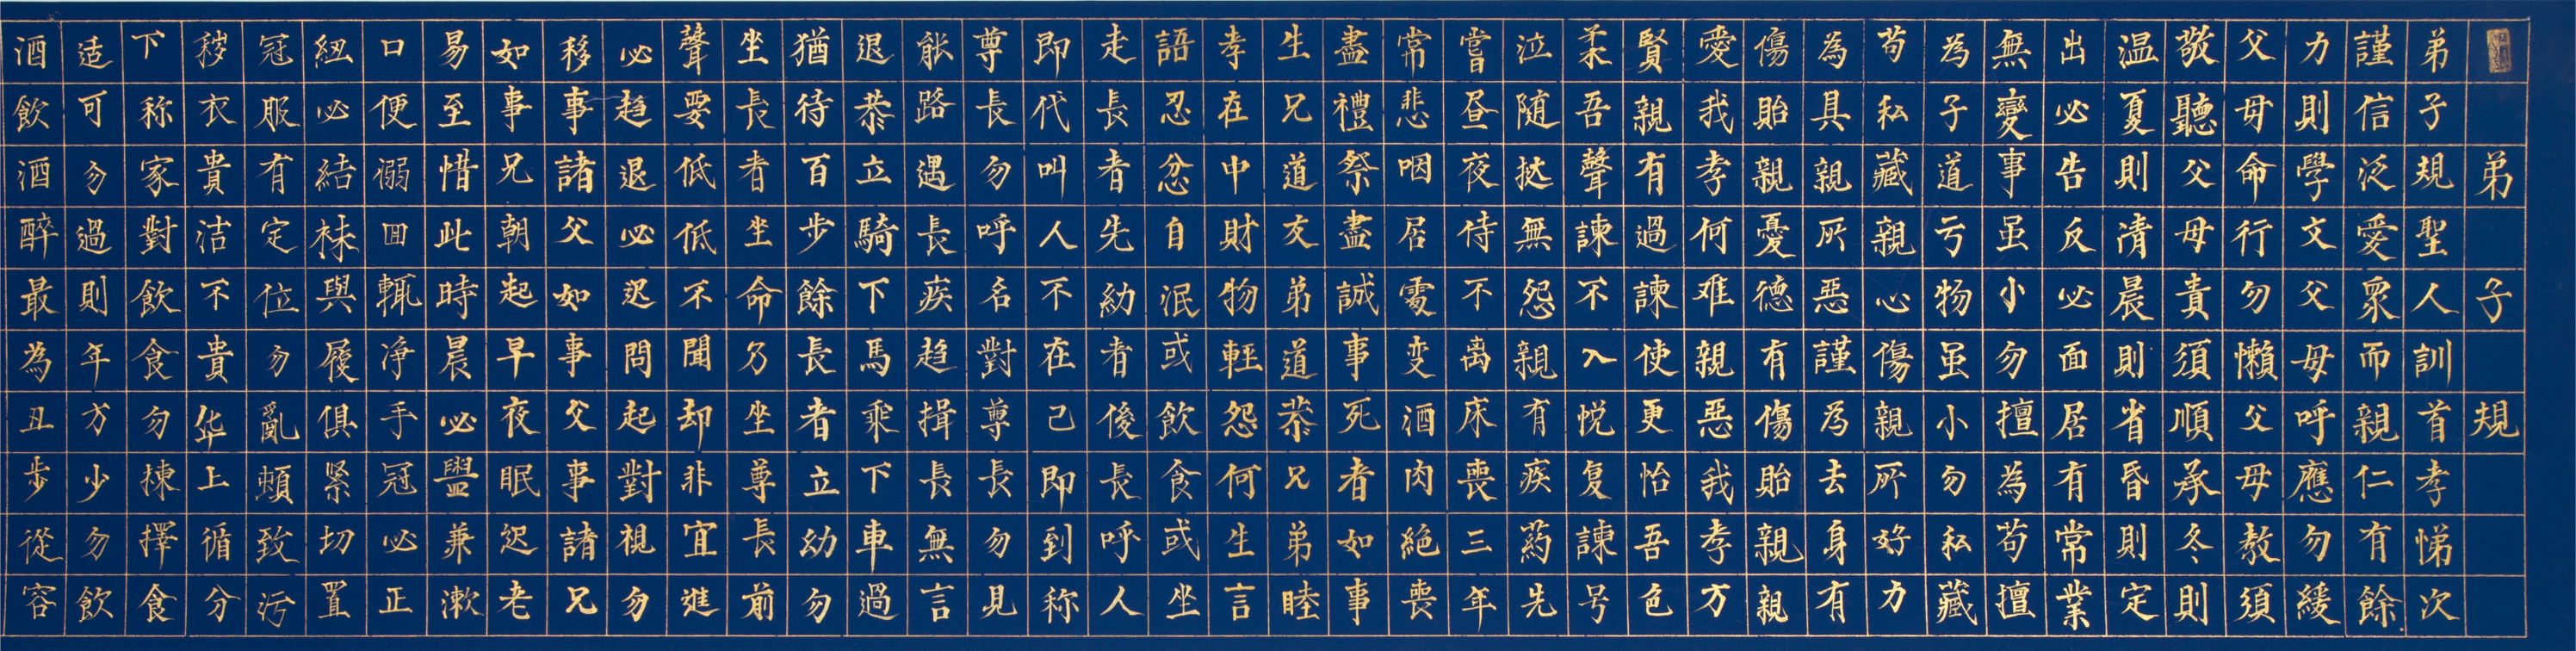 弟子規
弟子規聖人訓首孝悌次
謹信泛愛眾而親仁有餘
力則學文父母呼應勿緩
父母命行勿懶父母教須
敬聽父母責須順承冬則
温夏則清晨則省昏則定
出必告反必面居有常業
無變事虽小勿擅為苟擅
為子道亏物虽小勿私藏
苟私藏親心傷親所好力
為具親所惡謹為去身有
傷貽親憂德有傷貽親親
愛我孝何难親惡我孝方
賢親有過諫使更怡吾色
柔吾聲諫不入悦复諫号
泣随挞無怨親有疾药先
嘗昼夜侍不离床喪三年
常悲咽居處变酒肉絕喪
盡禮祭盡誠事死者如事
生兄道友弟道恭兄弟睦
孝在中財物輕怨何生言
語忍忿自泯或飲食或坐
走長者先幼者後長呼人
即代叫人不在己即到称
尊長勿呼名對尊長勿見
能路遇長疾趋揖長無言
退恭立騎下馬乘下車過
猶待百步餘長者立幼勿
坐長者坐命乃坐尊長前
聲要低低不聞却非宜進
必趋退必迟問起對視勿
移事諸父如事父事諸兄
如事兄朝起早夜眠迟老
易至惜此時晨必盥兼漱
口便溺回輒净手冠必正
紐必結袜與履俱緊切置
冠服有定位勿亂頓致污
穢衣貴洁不貴华上循分
下称家對飲食勿揀擇食
适可勿過則年方少勿飲
酒飲酒醉最為丑步從容